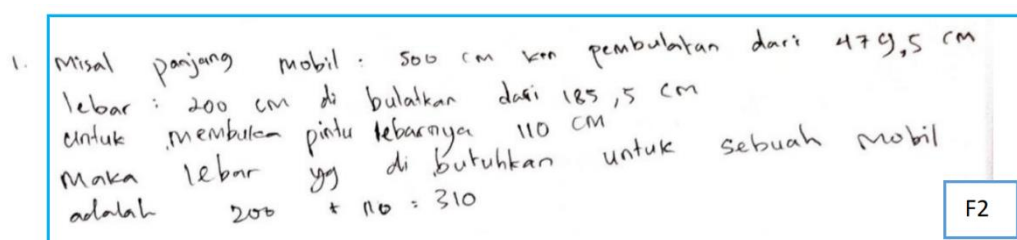 1. Misal panjang mobil : 500 cm krn pembulatan dari 479,5 cm
lebar : 200 cm di bulatkan dari 185,5 cm
untuk membuka pintu lebarnya 110 cm
Maka lebar yg di butuhkan untuk sebuah mobil
adalah 200 + 110 = 310
F2